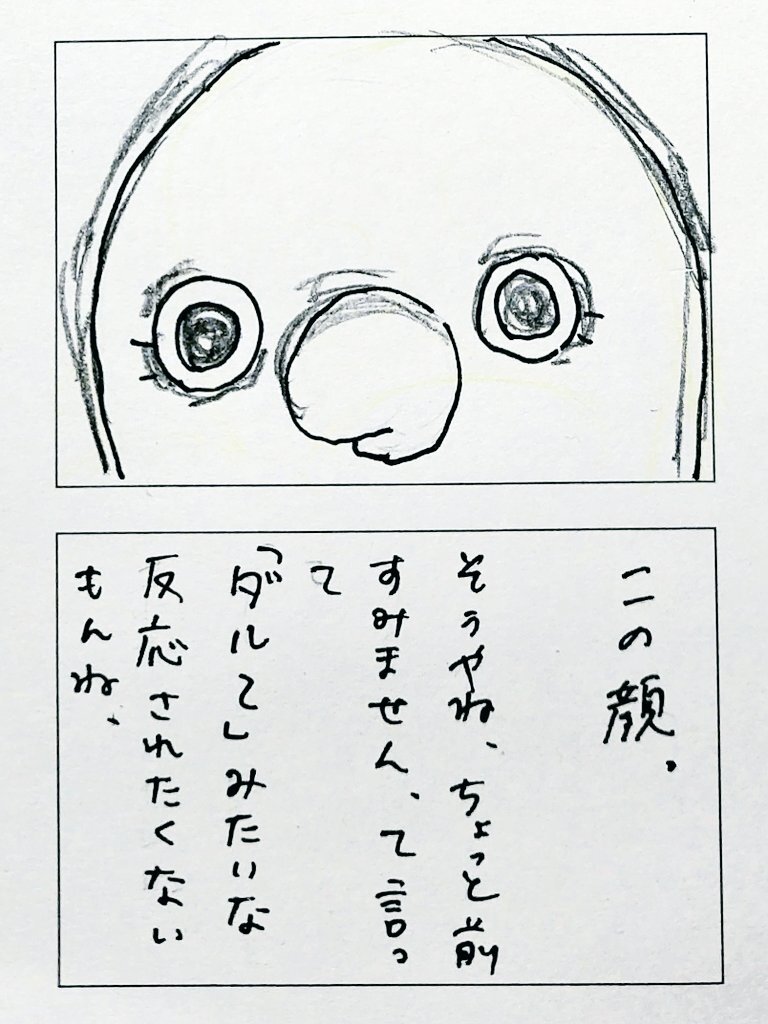 この顔。
そうやね、ちょっと前
すみません、て言っ
て
「ダルて」みたいな
反応されたくない
もんね、